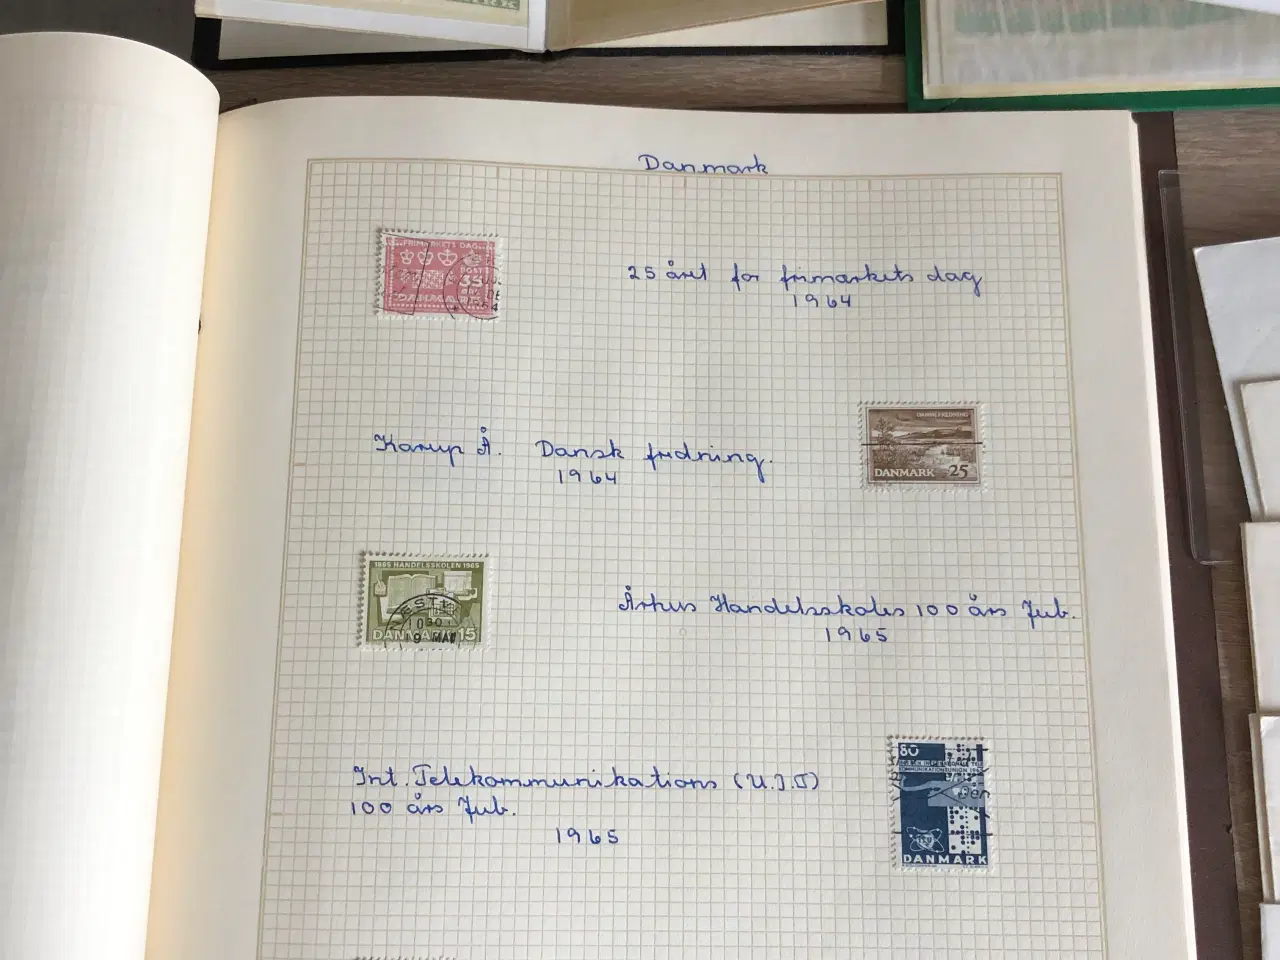 Danmark
FRIMÆRKETS DAG
POST
35
DANMARK
25 året for frimærkets dag
1964
Karup Å. Dansk fredning.
1964
DANSK FREDNING
DANMARK 25
1865 HANDELSSKOLEN 1965
1030
19 MAJ
DANMARK 15
Århus Handelsskoles 100 års Jub.
1965
Int. Telekommunikations (U.I.T)
100 års Jub.
1965
80
DANMARK